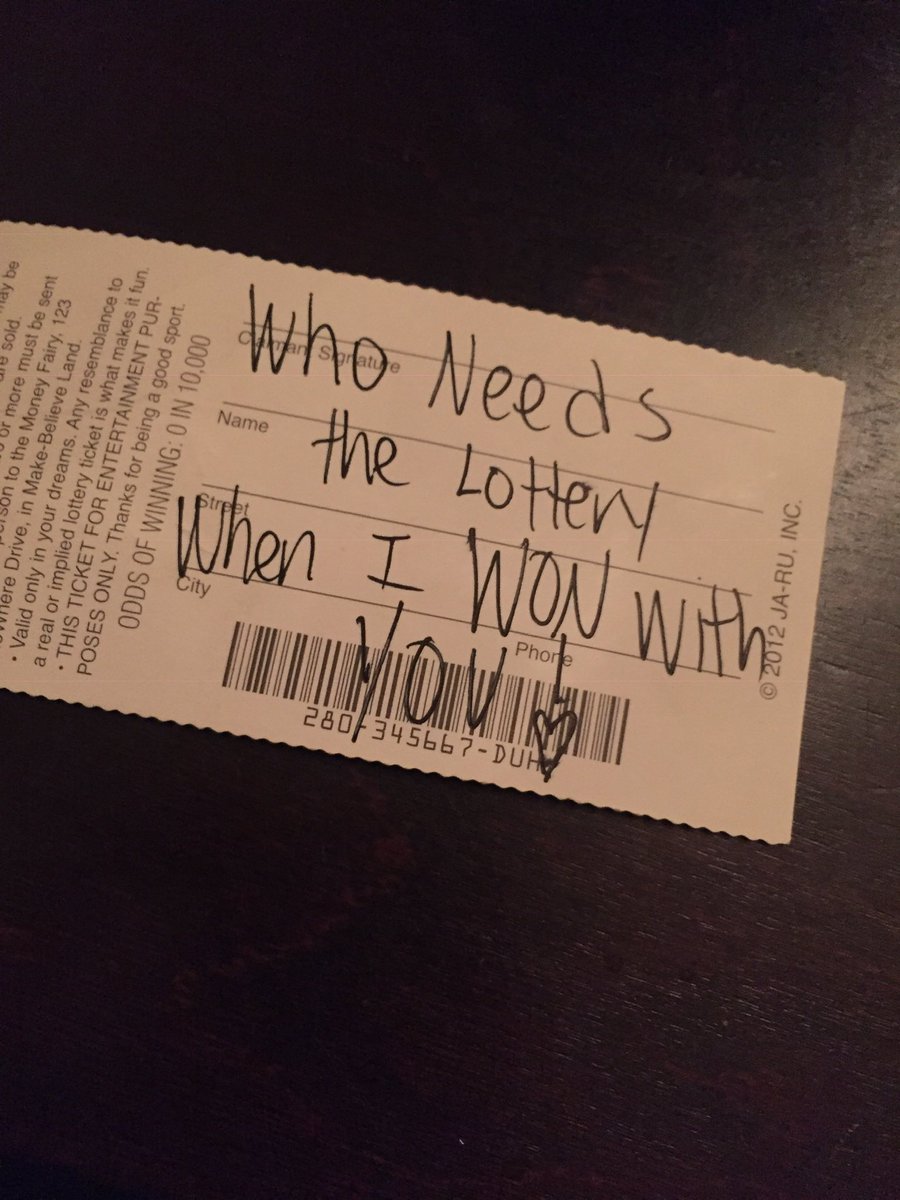 may be
are sold.
or more must be sent
person to the Money Fairy, 123
where Drive, in Make-Believe Land.
• Valid only in your dreams. Any resemblance to
a real or implied lottery ticket is what makes it fun.
• THIS TICKET FOR ENTERTAINMENT PUR-
POSES ONLY. Thanks for being a good sport.
ODDS OF WINNING: 0 IN 10,000
Claimant Signature
Who Needs
Name
the Lottery
Street
When I WON With
City
Phone
YOU!
280-345667-DUH
© 2012 JA-RU, INC.